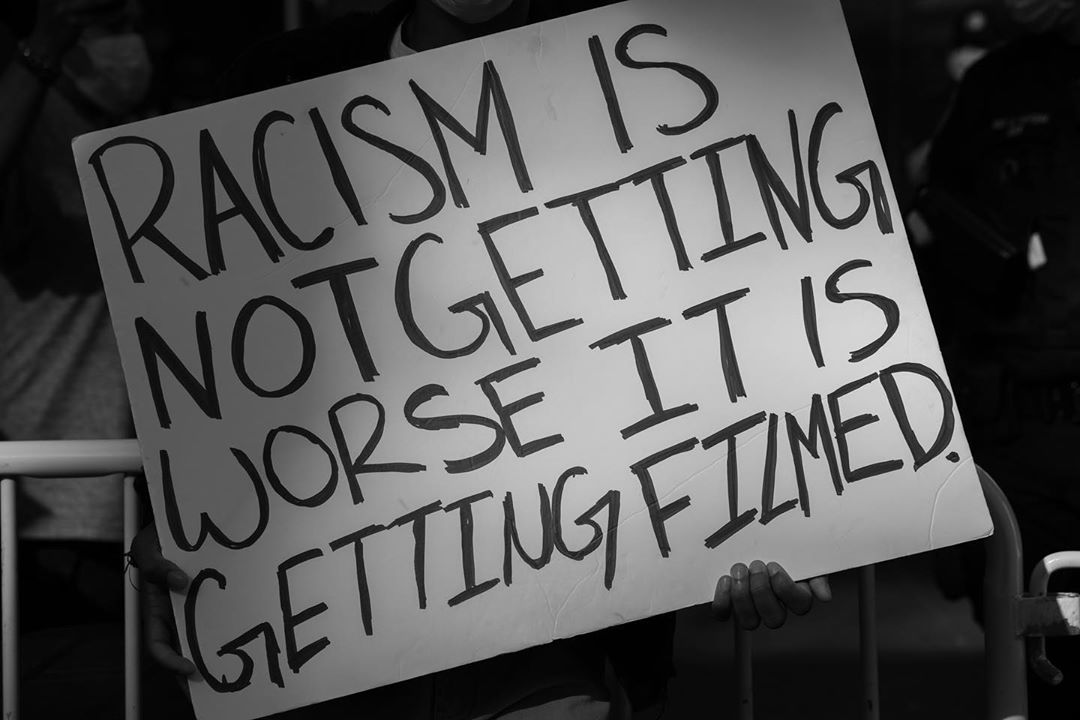 RACISM IS
NOT GETTING
WORSE IT IS
GETTING FILMED.